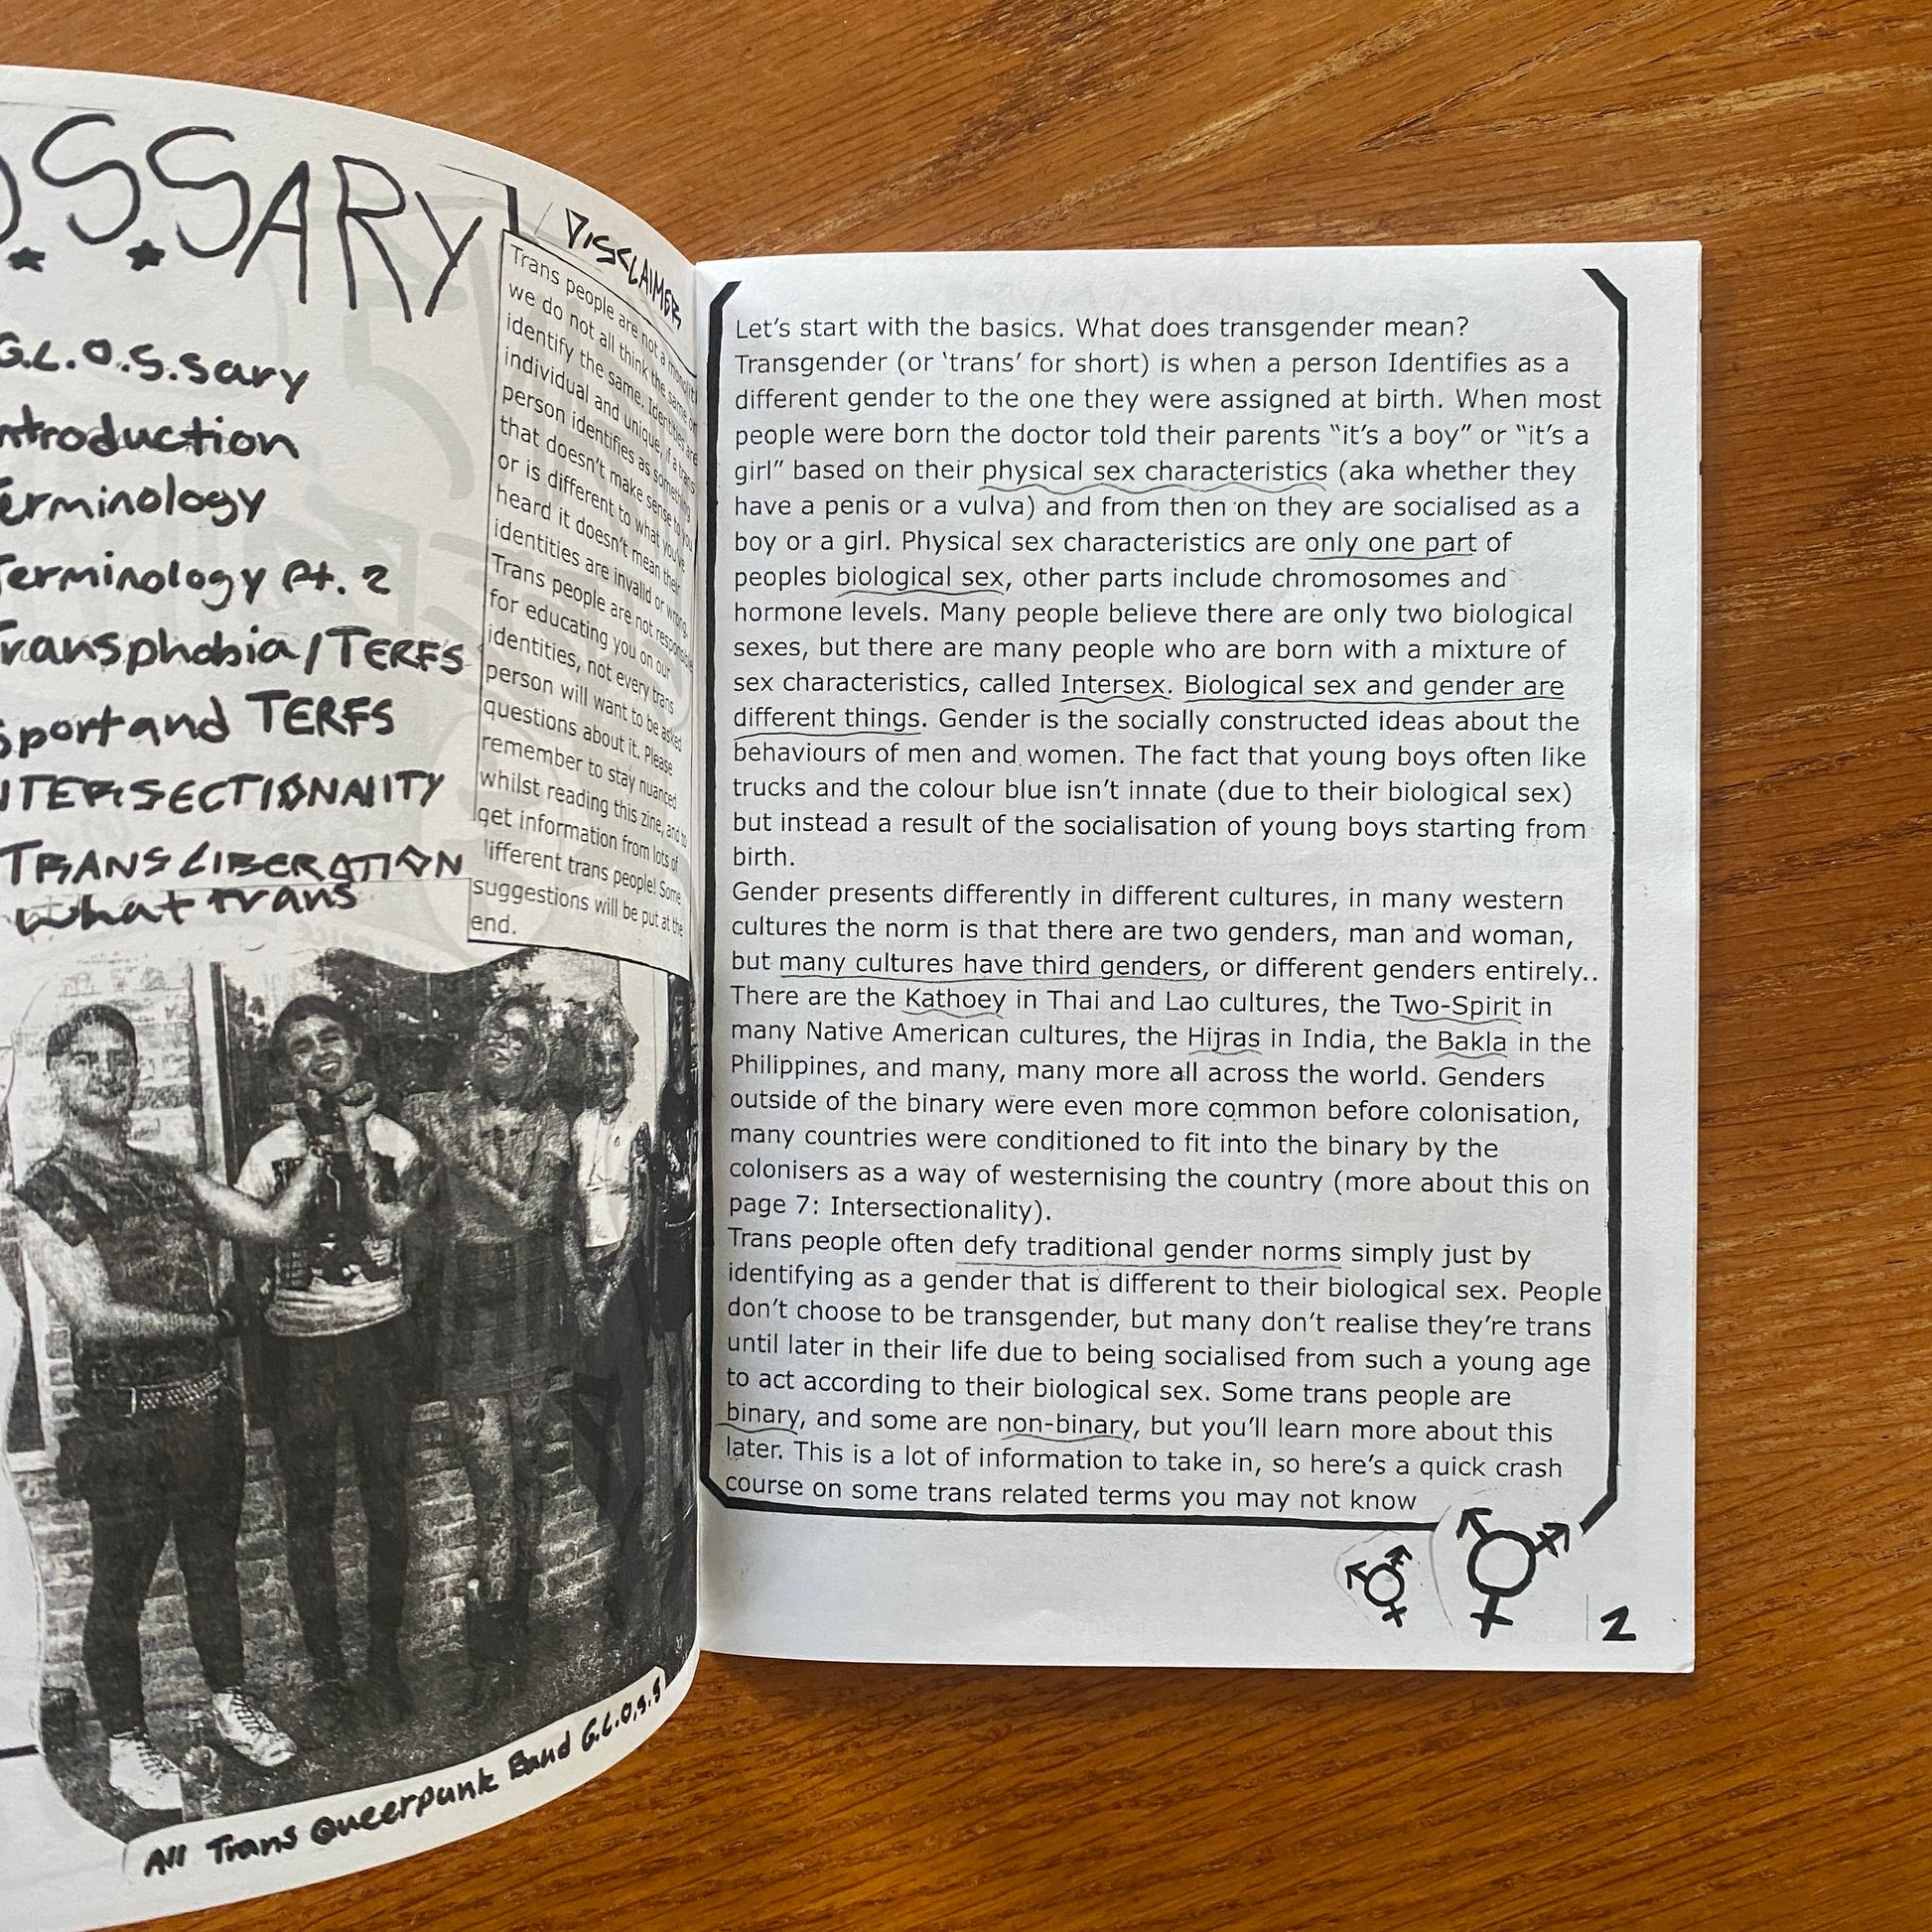 O.S.SARY
G.L.O.S.sary
ntroduction
erminology
Terminology Pt. 2
Transphobia/TERFS
Sport and TERFS
NTERSECTIONALITY
TRANS LIBERATION
what trans
DISCLAIMER
Trans people are not a monolith
we do not all think the same or
identify the same. Identities are
individual and unique, if a trans
person identifies as something
that doesn't make sense to you
or is different to what you've
heard it doesn't mean their
identities are invalid or wrong.
Trans people are not responsible
for educating you on our
identities, not every trans
person will want to be asked
questions about it. Please
remember to stay nuanced
whilst reading this zine, and to
get information from lots of
ifferent trans people! Some
suggestions will be put at the
end.
All Trans Queerpunk Band G.L.O.S.S
Let's start with the basics. What does transgender mean?
Transgender (or 'trans' for short) is when a person Identifies as a
different gender to the one they were assigned at birth. When most
people were born the doctor told their parents "it's a boy" or "it's a
girl" based on their physical sex characteristics (aka whether they
have a penis or a vulva) and from then on they are socialised as a
boy or a girl. Physical sex characteristics are only one part of
peoples biological sex, other parts include chromosomes and
hormone levels. Many people believe there are only two biological
sexes, but there are many people who are born with a mixture of
sex characteristics, called Intersex. Biological sex and gender are
different things. Gender is the socially constructed ideas about the
behaviours of men and women. The fact that young boys often like
trucks and the colour blue isn't innate (due to their biological sex)
but instead a result of the socialisation of young boys starting from
birth.
Gender presents differently in different cultures, in many western
cultures the norm is that there are two genders, man and woman,
but many cultures have third genders, or different genders entirely..
There are the Kathoey in Thai and Lao cultures, the Two-Spirit in
many Native American cultures, the Hijras in India, the Bakla in the
Philippines, and many, many more all across the world. Genders
outside of the binary were even more common before colonisation,
many countries were conditioned to fit into the binary by the
colonisers as a way of westernising the country (more about this on
page 7: Intersectionality).
Trans people often defy traditional gender norms simply just by
identifying as a gender that is different to their biological sex. People
don't choose to be transgender, but many don't realise they're trans
until later in their life due to being socialised from such a young age
to act according to their biological sex. Some trans people are
binary, and some are non-binary, but you'll learn more about this
later. This is a lot of information to take in, so here's a quick crash
course on some trans related terms you may not know
2